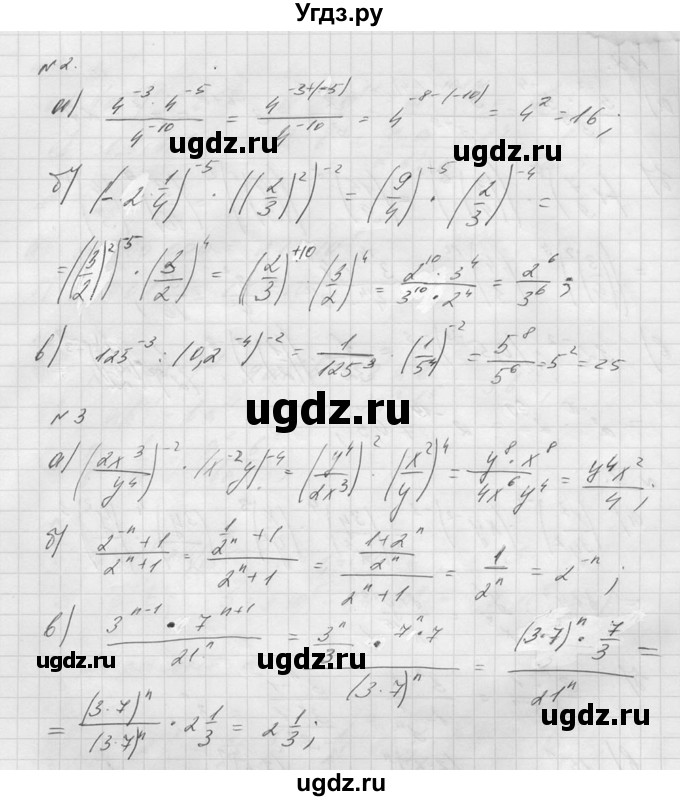 Угдз.ру
№2.
а) (4^-3 · 4^-5)/4^-10 = 4^(-3+(-5))/4^-10 = 4^(-8-(-10)) = 4^2 = 16;
ugdz.ru ugdz.ru
б) (-2 1/4)^-5 · ((2/3)^2)^-2 = (9/4)^-5 · (2/3)^-4 =
= ((3/2)^2)^-5 · (3/2)^4 = (2/3)^+10 · (3/2)^4 = (2^10 · 3^4)/(3^10 · 2^4) = 2^6/3^6;
в) 125^-3 : (0,2^-4)^-2 = 1/125^3 · (1/5^4)^-2 = 5^8/5^6 = 5^2 = 25
№3
ugdz.ru
а) (2x^3/y^4)^-2 · (x^-2 y)^-4 = (y^4/2x^3)^2 · (x^2/y)^4 = (y^8 · x^8)/(4x^6 y^4) = y^4x^2/4;
б) (2^-n + 1)/(2^n + 1) = (1/2^n + 1)/(2^n + 1) = ((1+2^n)/2^n)/(2^n + 1) = 1/2^n = 2^-n;
в) (3^(n-1) · 7^(n+1))/21^n = (3^n/3 · 7^n · 7)/(3·7)^n = ((3·7)^n · 7/3)/21^n =
ugdz.ru ugdz.ru ugdz.ru
= (3·7)^n/(3·7)^n · 2 1/3 = 2 1/3;
ugdz.ru